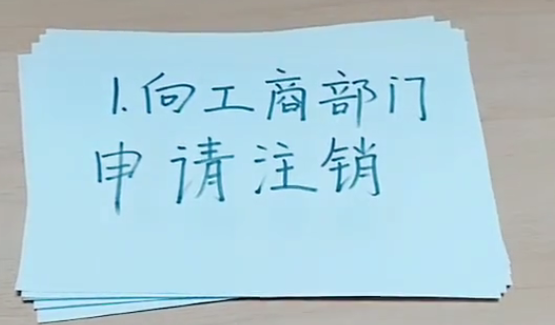 1.向工商部门
申请注销